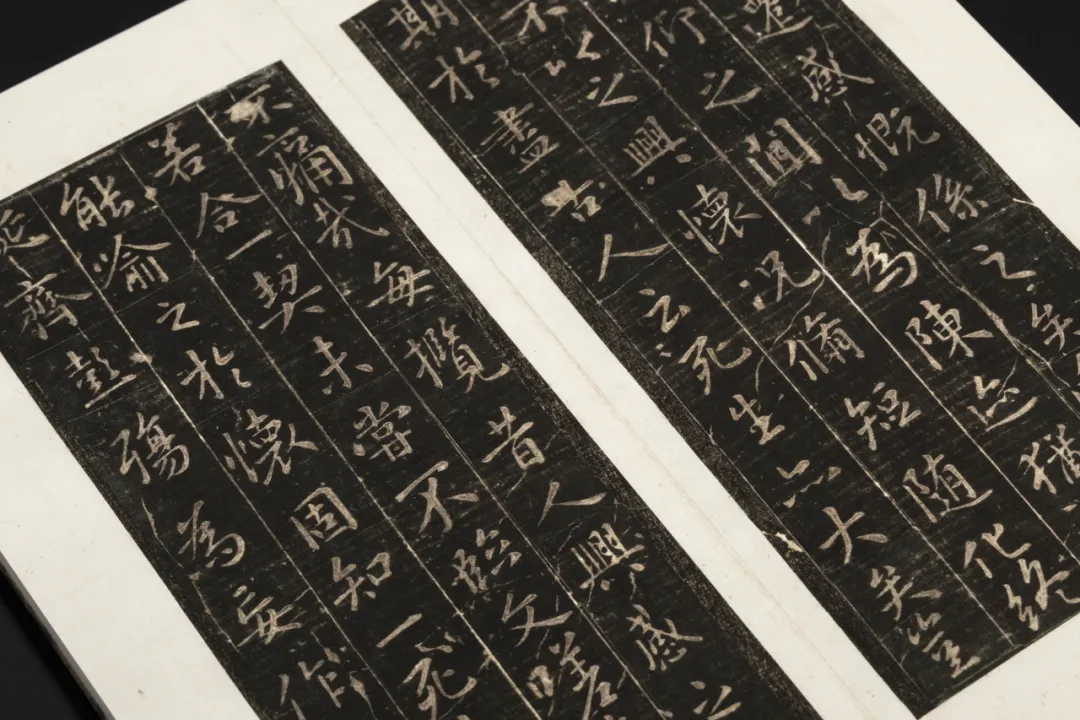 遷感慨係之矣
仰之間以為陳迹猶
不以之興懷況脩短隨化終
期於盡古人云死生亦大矣豈
不痛哉每攬昔人興感之
若合一契未嘗不臨文嗟
能喻之於懷固知一死
誕齊彭殤為妄作